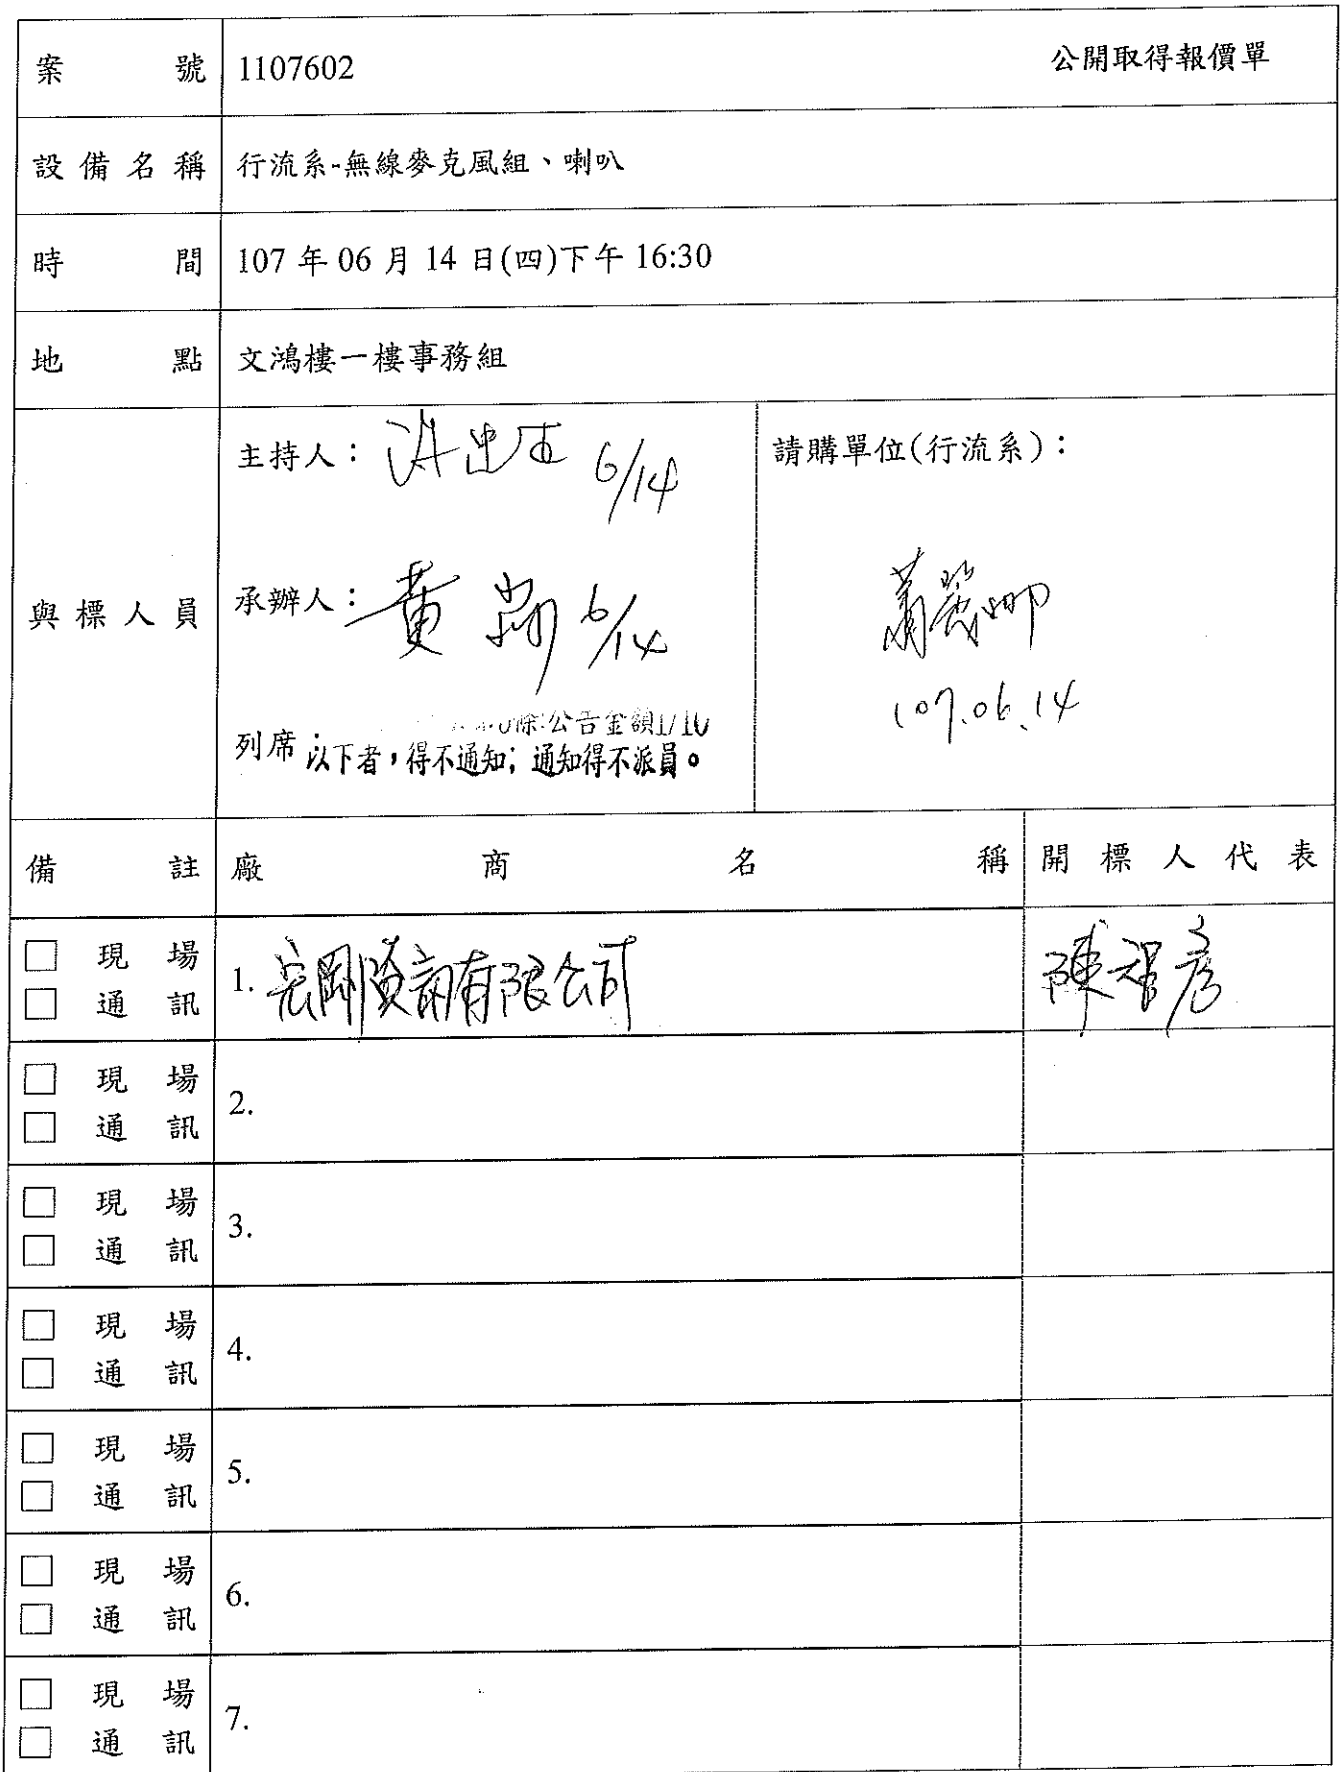 案號 1107602 公開取得報價單
設備名稱 行流系-無線麥克風組、喇叭
時間 107 年 06 月 14 日(四)下午 16:30
地點 文鴻樓一樓事務組
與標人員
主持人: 6/14
請購單位(行流系):
承辦人:黃 6/14
蕭麗娜
107.06.14
列席:
條:公告金額1/10
以下者,得不通知;通知得不派員。
備註 廠商名稱 開標人代表
□ 現場
□ 通訊
1. 宏剛資訊有限公司 陳智彥
□ 現場
□ 通訊
2.
□ 現場
□ 通訊
3.
□ 現場
□ 通訊
4.
□ 現場
□ 通訊
5.
□ 現場
□ 通訊
6.
□ 現場
□ 通訊
7.